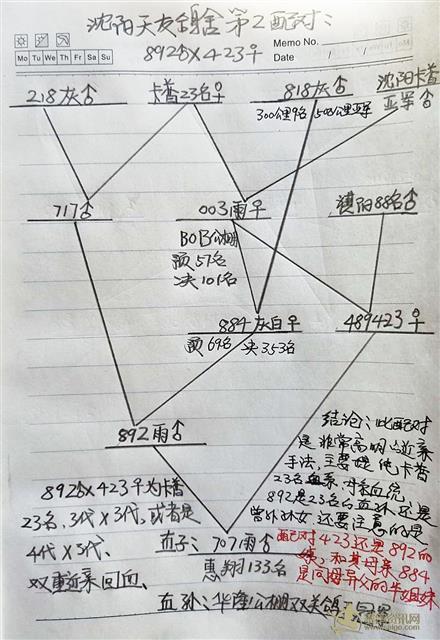 沈阳天友鸽舍第2配对:
892♂×423♀
Memo No.
Mo Tu We Th Fr Sa Su
Date / /
218灰♂
卡普23名♀
818灰♂
沈阳卡普
亚军♂
300公里9名 500公里亚军
717♂
003雨♀
88名♂
BOB公棚
预57名
决101名
884灰白♀
489423♀
预69名 决353名
892雨♂
结论:此配对
是非常高明近亲
手法,主要是
卡普
23名血系
892是23名
还是
曾外孙女,还要注意的是
配对423还是892的
和其母亲884
是同母异父的半姐妹
892♂×423♀为卡普
23名,3代×3代,或者是
4代×3代、
双重近亲回血、
直子:707雨♂
惠翔133名
直孙:华隆公棚双关鸽